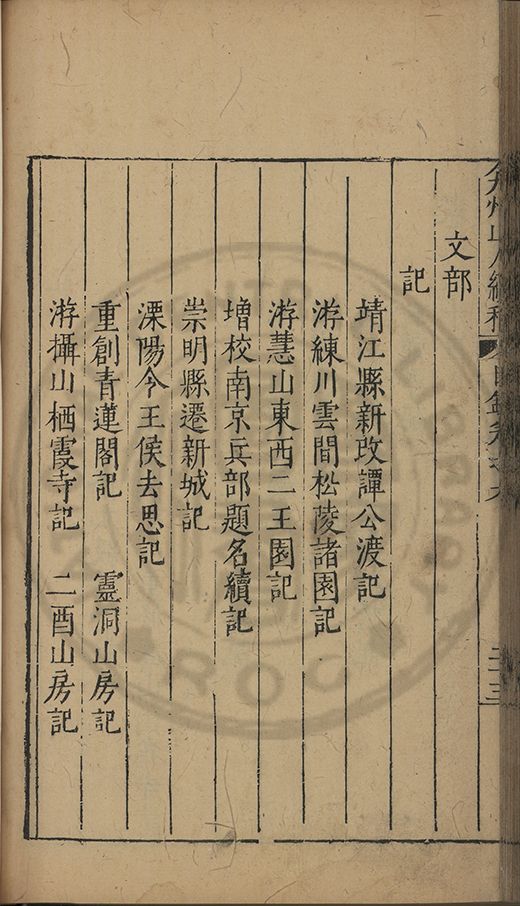 弇州山人續稿 目錄卷之九 二十三
文部
記
靖江縣新改譚公渡記
游練川雲間松陵諸園記
游慧山東西二王園記
增校南京兵部題名續記
崇明縣遷新城記
溧陽令王侯去思記
重創青蓮閣記 靈洞山房記
游攝山栖霞寺記 二酉山房記